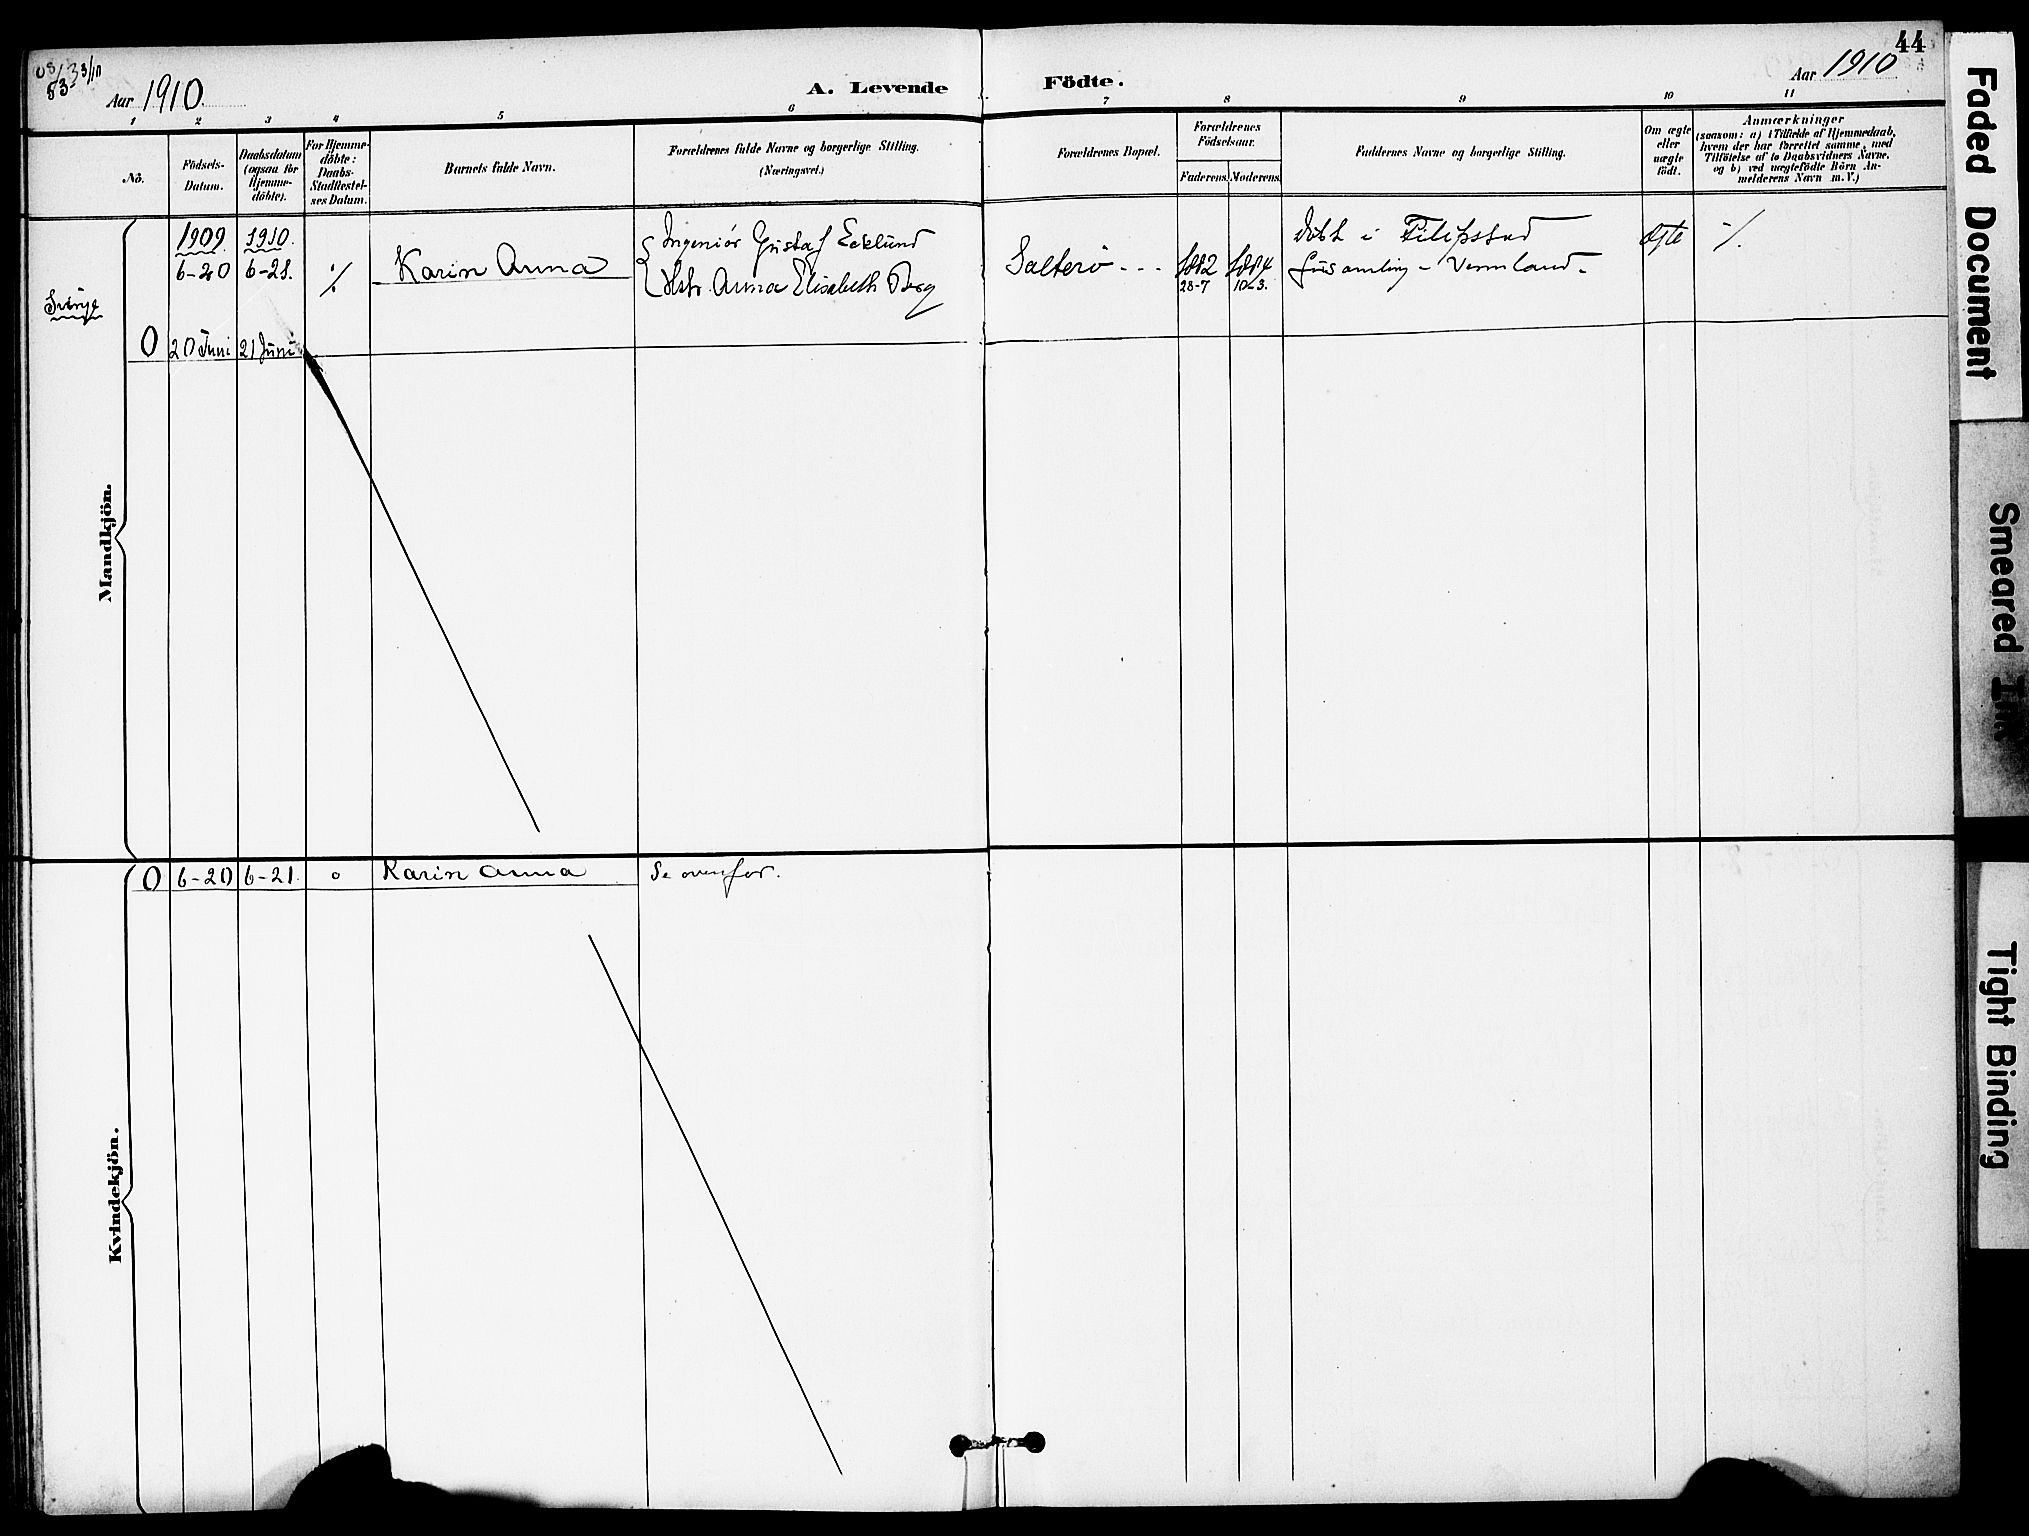 44
Aar 1910.
A. Levende Födte.
Aar 1910
1 2 3 4 5 6 7 8 9 10 11
No.
Födsels-
Datum.
Daabsdatum
(ogsaa for
Hjemme-
döbte).
For Hjemme-
döbte:
Daabs-
Stadfæstel-
ses Datum.
Barnets fulde Navn.
Forældrenes fulde Navne og borgerlige Stilling.
(Næringsvei.)
Forældrenes Bopæl.
Forældrenes
Födselsaar.
Faderens. Moderens.
Faddernes Navne og borgerlige Stilling.
Om ægte
eller
uægte
födt.
Anmærkninger
(saasom: a) i Tilfælde af Hjemmedaab,
hvem der har forrettet samme, med
Tilföielse af to Daabsvidners Navne,
og b) ved uægtefödte Börn An-
melderens Navn m. V.)
Mandkjön.
1909 1910.
6-20 6-21.
Karin Anna
Ingeniör Gustaf Ecklund
Hstr. Anna Elisabeth Berg
Salterö - - -
1882
28-7
1884
10-3.
Döbt i Filipstad
församling - Vermland -
ægte
Sverige
0 20 Juni 21 Juni
Kvindekjön.
0 6-20 6-21. o Karin Anna Se ovenfor.
Faded Document
Smeared Ink
Tight Binding